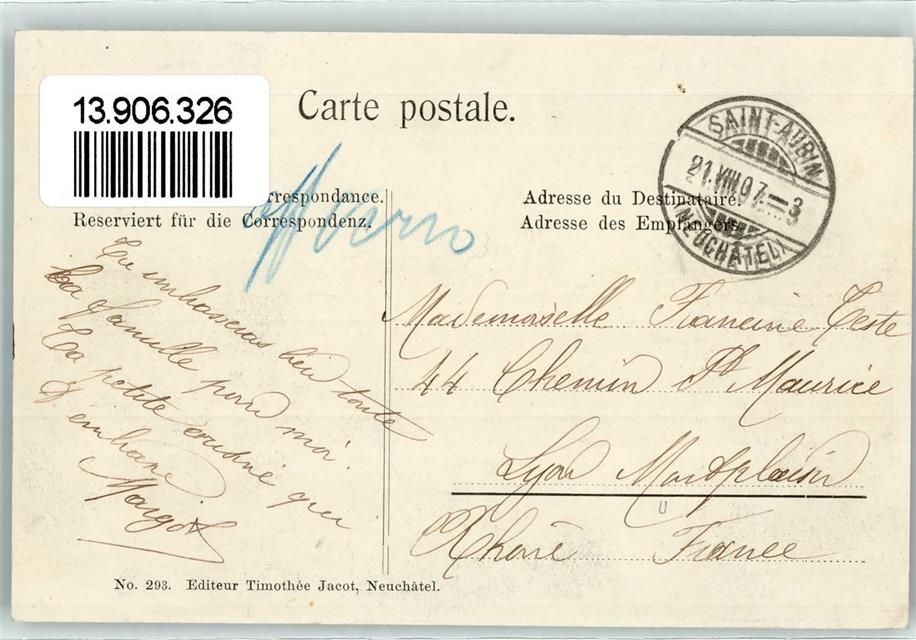 13.906.326
Carte postale.
SAINT-AUBIN
21.VIII.07.–3
(NEUCHÂTEL)
respondance.
Reserviert für die Correspondenz.
Adresse du Destinataire.
Adresse des Empfängers.
Tu embrasseras bien toute
ta famille pour moi.
Ta petite cousine qui
t'embrasse
Margot
Mademoiselle Francine Teste
44 Chemin St Maurice
Lyon Montplaisir
Rhône France
No. 293. Editeur Timothée Jacot, Neuchâtel.